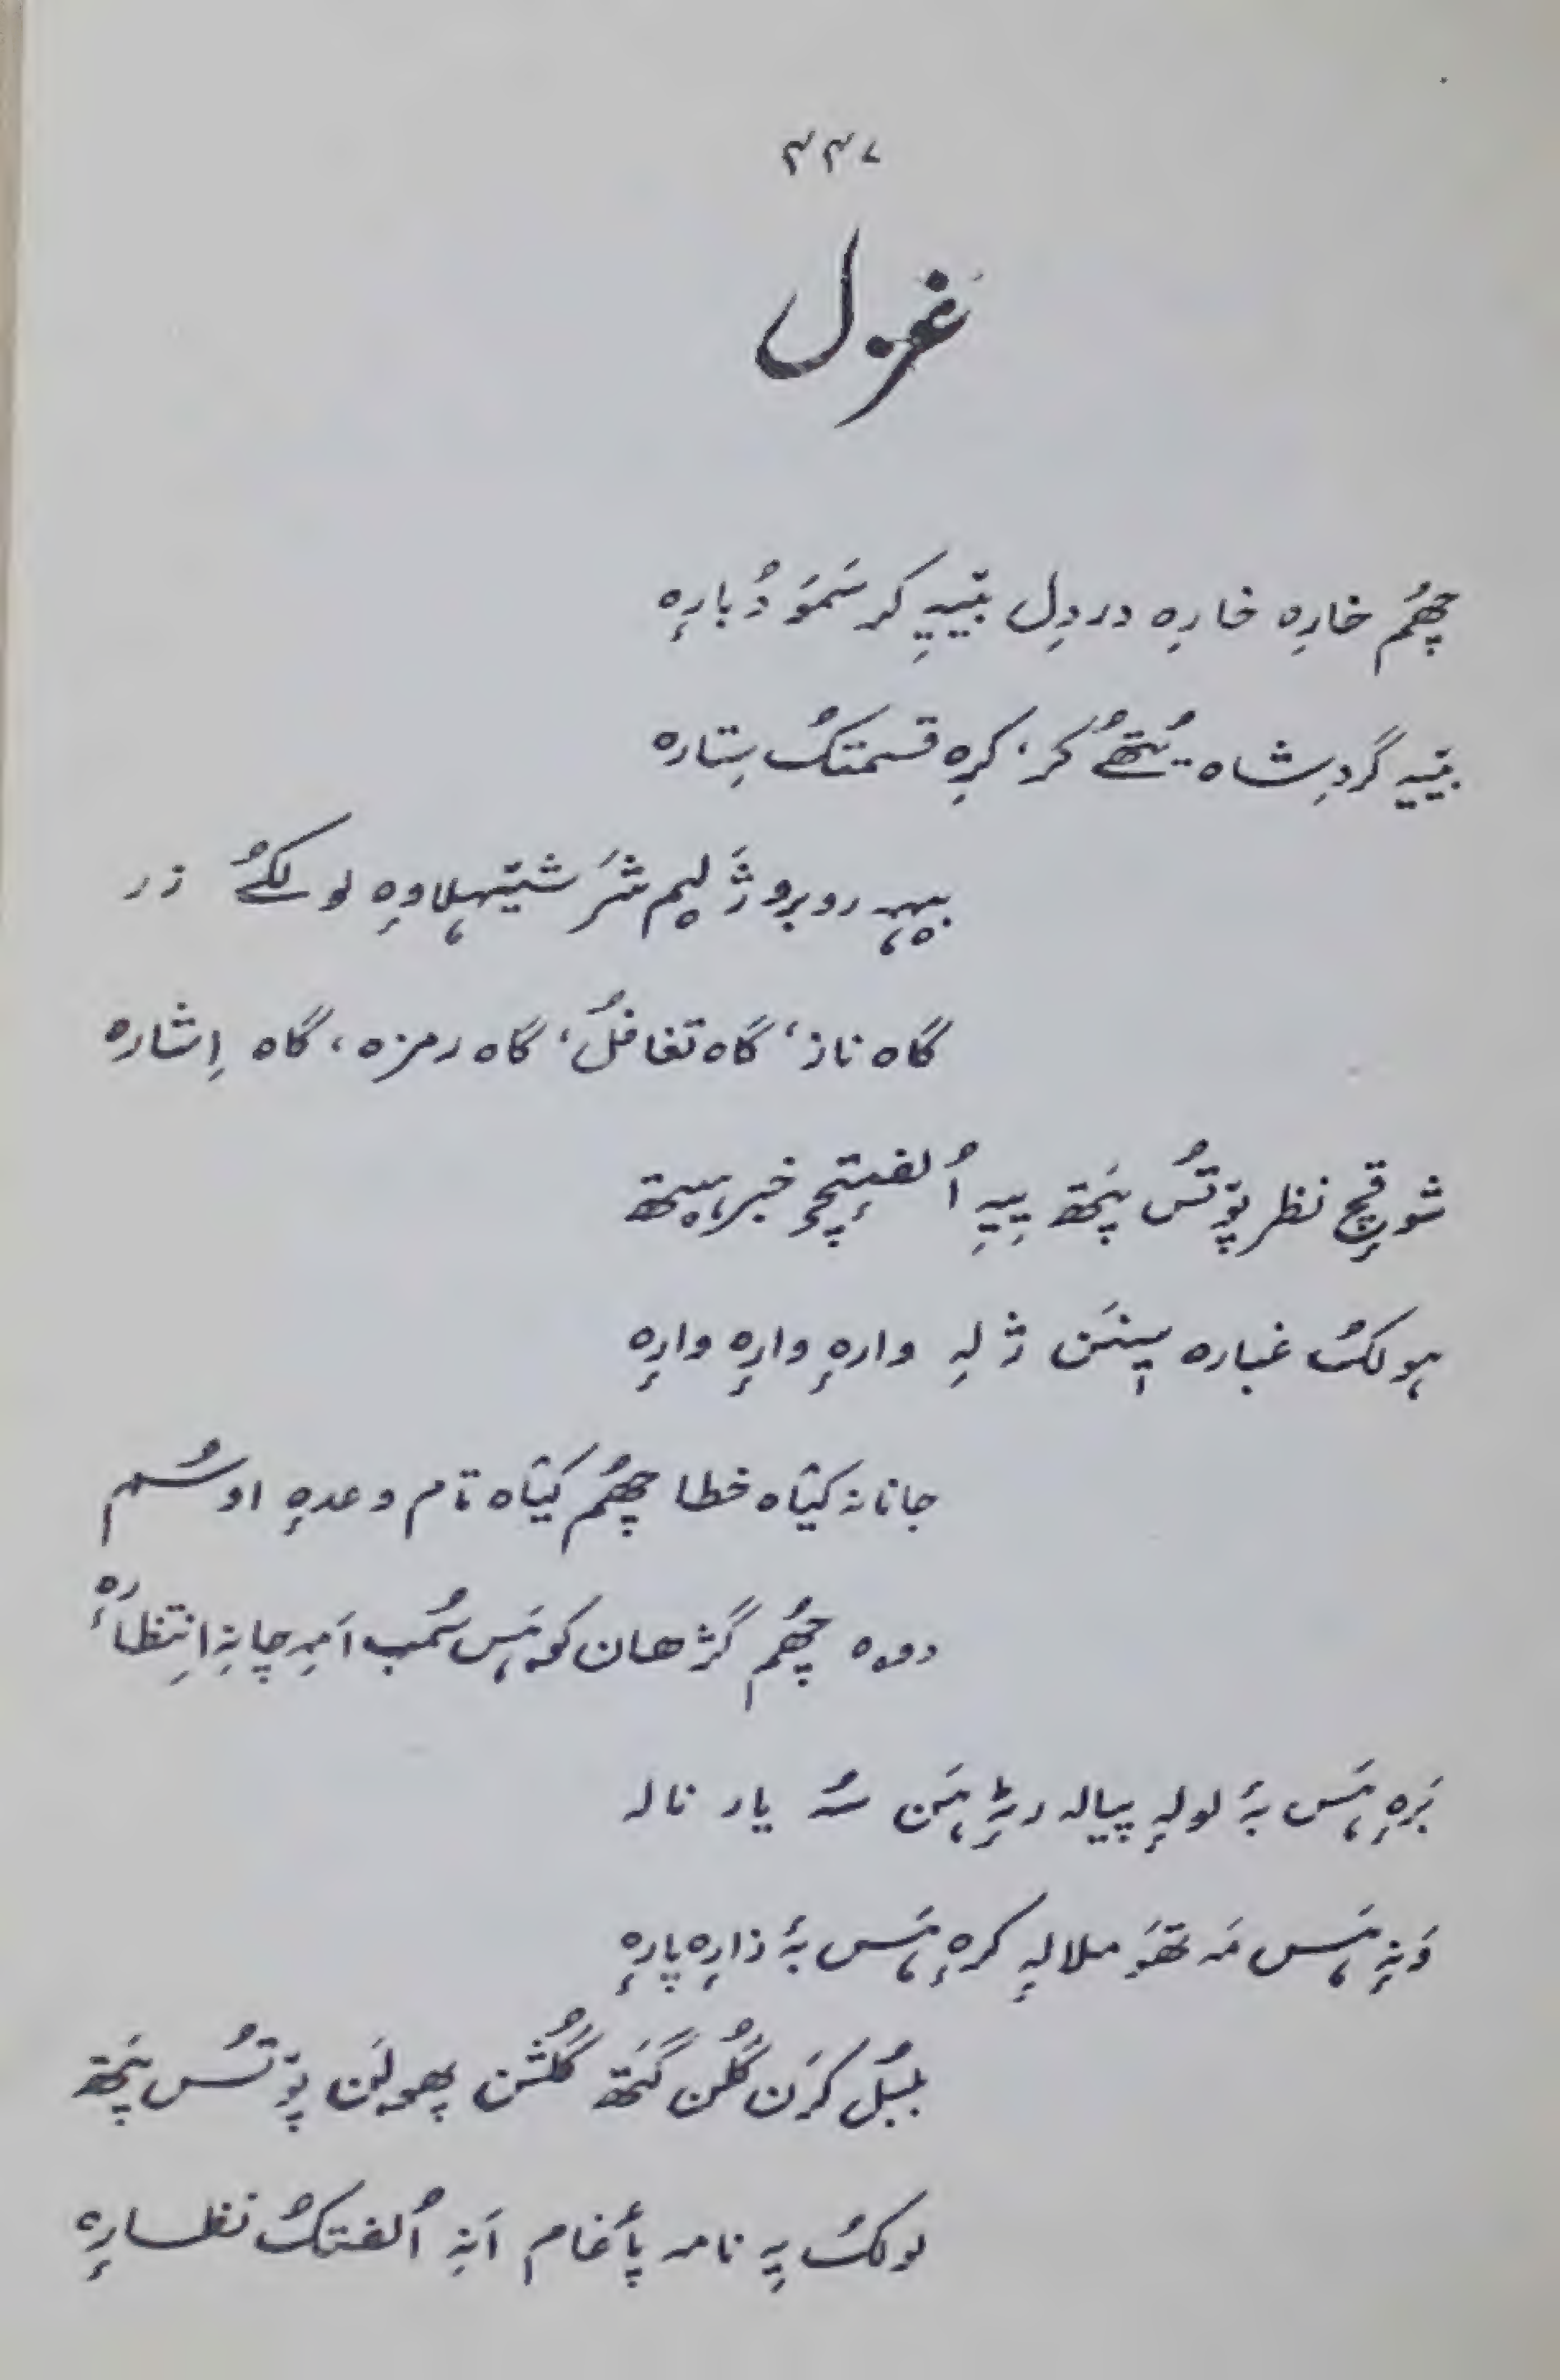 ۴۴۷
غزل
چھُم خارٕہ خارٕہ درد دِل بیٚیہِ کر سَمَو دُبارٕہ
بیٚیہِ گردِشاہ یُتھُے کر، کرِہ قسمتُک سِتارہ
روبرو ژَ لیم شَر شیٚہلاوِہ لولکُے زر
گاہ ناز، گاہ تغافُل، گاہ رمزہ، گاہ اِشارہ
شوقٕچ نظر پوٚتُس پَتھ یِیہِ اُلفتٕچ خبر ہیتھ
ہولکُ غبارہ سینَن ژلہِ وارٕہ وارٕہ وارٕہ
جانانہ کیٛاہ خطا چھُم کیٛاہ تام وعدٕہ اوسُم
دوہ چھُم گژھان کوہَس سُمب اَمہِ چانہِ اِنتظارٕہ
بَرٕہ ہَس بہٕ لولٕہ پیالہ رٹہِ ہَن سُہ یار نالہ
وَنہِ ہَس مَہ تھَو ملالہٕ کرٕہ ہَس بہٕ زارٕہ پارٕہ
بُلبُل کَرَن گُلَن گَتھ گُلشَن پھولَن پوٚتُس پَتھ
لولُک یہِ نامہ پأغام اَنہِ اُلفتُک نظارٕہ